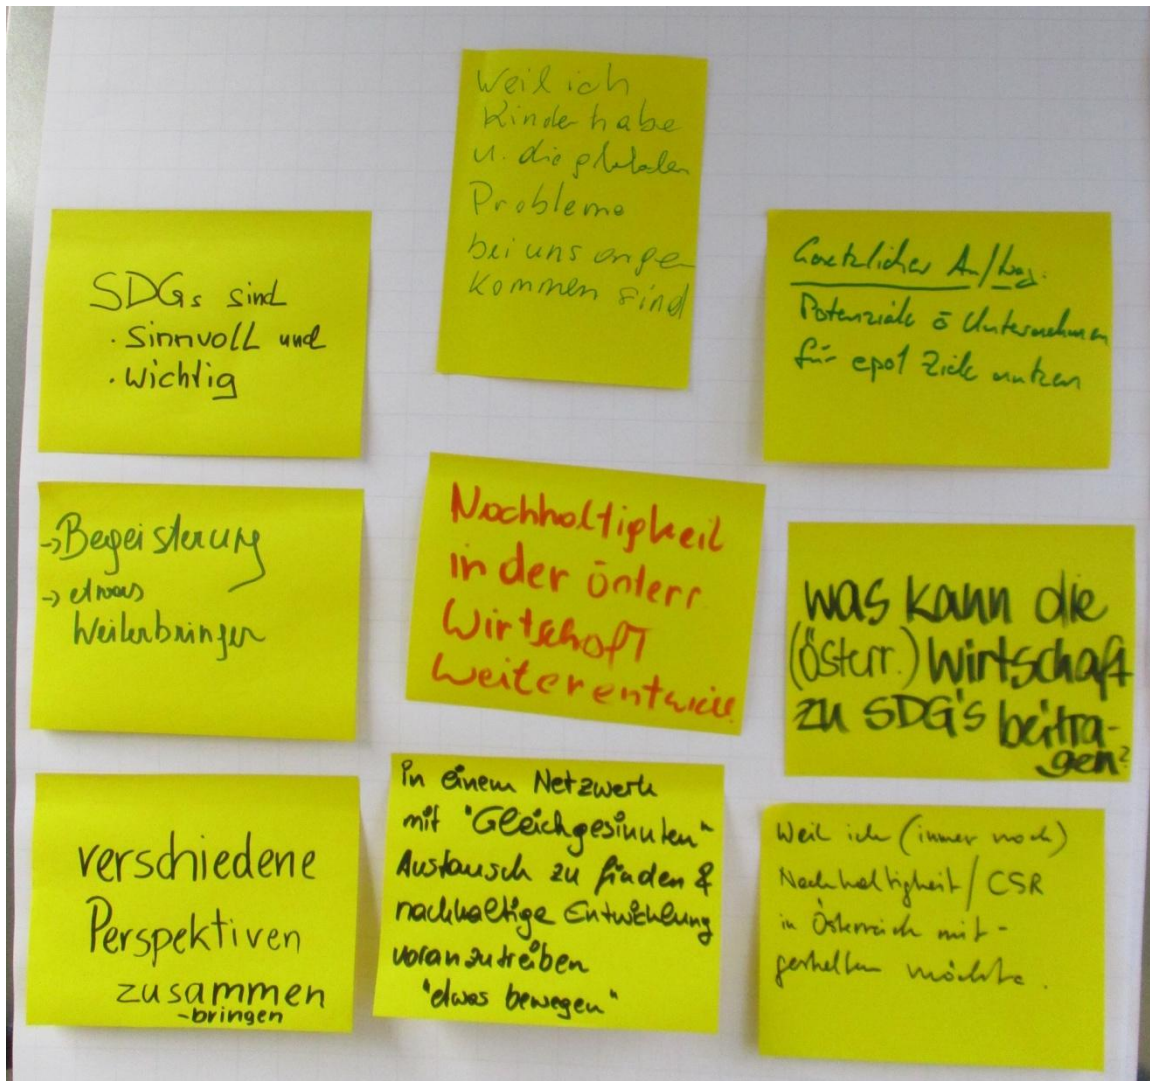 Weil ich
Kinder habe
u. die globalen
Probleme
bei uns ange
kommen sind
SDGs sind
· sinnvoll und
· wichtig
Gesetzlicher Auftrag.
Potenziale ö Unternehmen
für epol Ziele nutzen
-> Begeisterung
-> etwas
Weiterbringen
Nachhaltigkeit
in der österr
Wirtschaft
weiterentwick
was kann die
(österr.) Wirtschaft
zu SDG's beitra-
gen?
verschiedene
Perspektiven
zusammen
-bringen
in einem Netzwerk
mit "Gleichgesinnten"
Austausch zu finden &
nachhaltige Entwicklung
voranzutreiben
"etwas bewegen"
Weil ich (immer noch)
Nachhaltigkeit / CSR
in Österreich mit-
gestalten möchte.